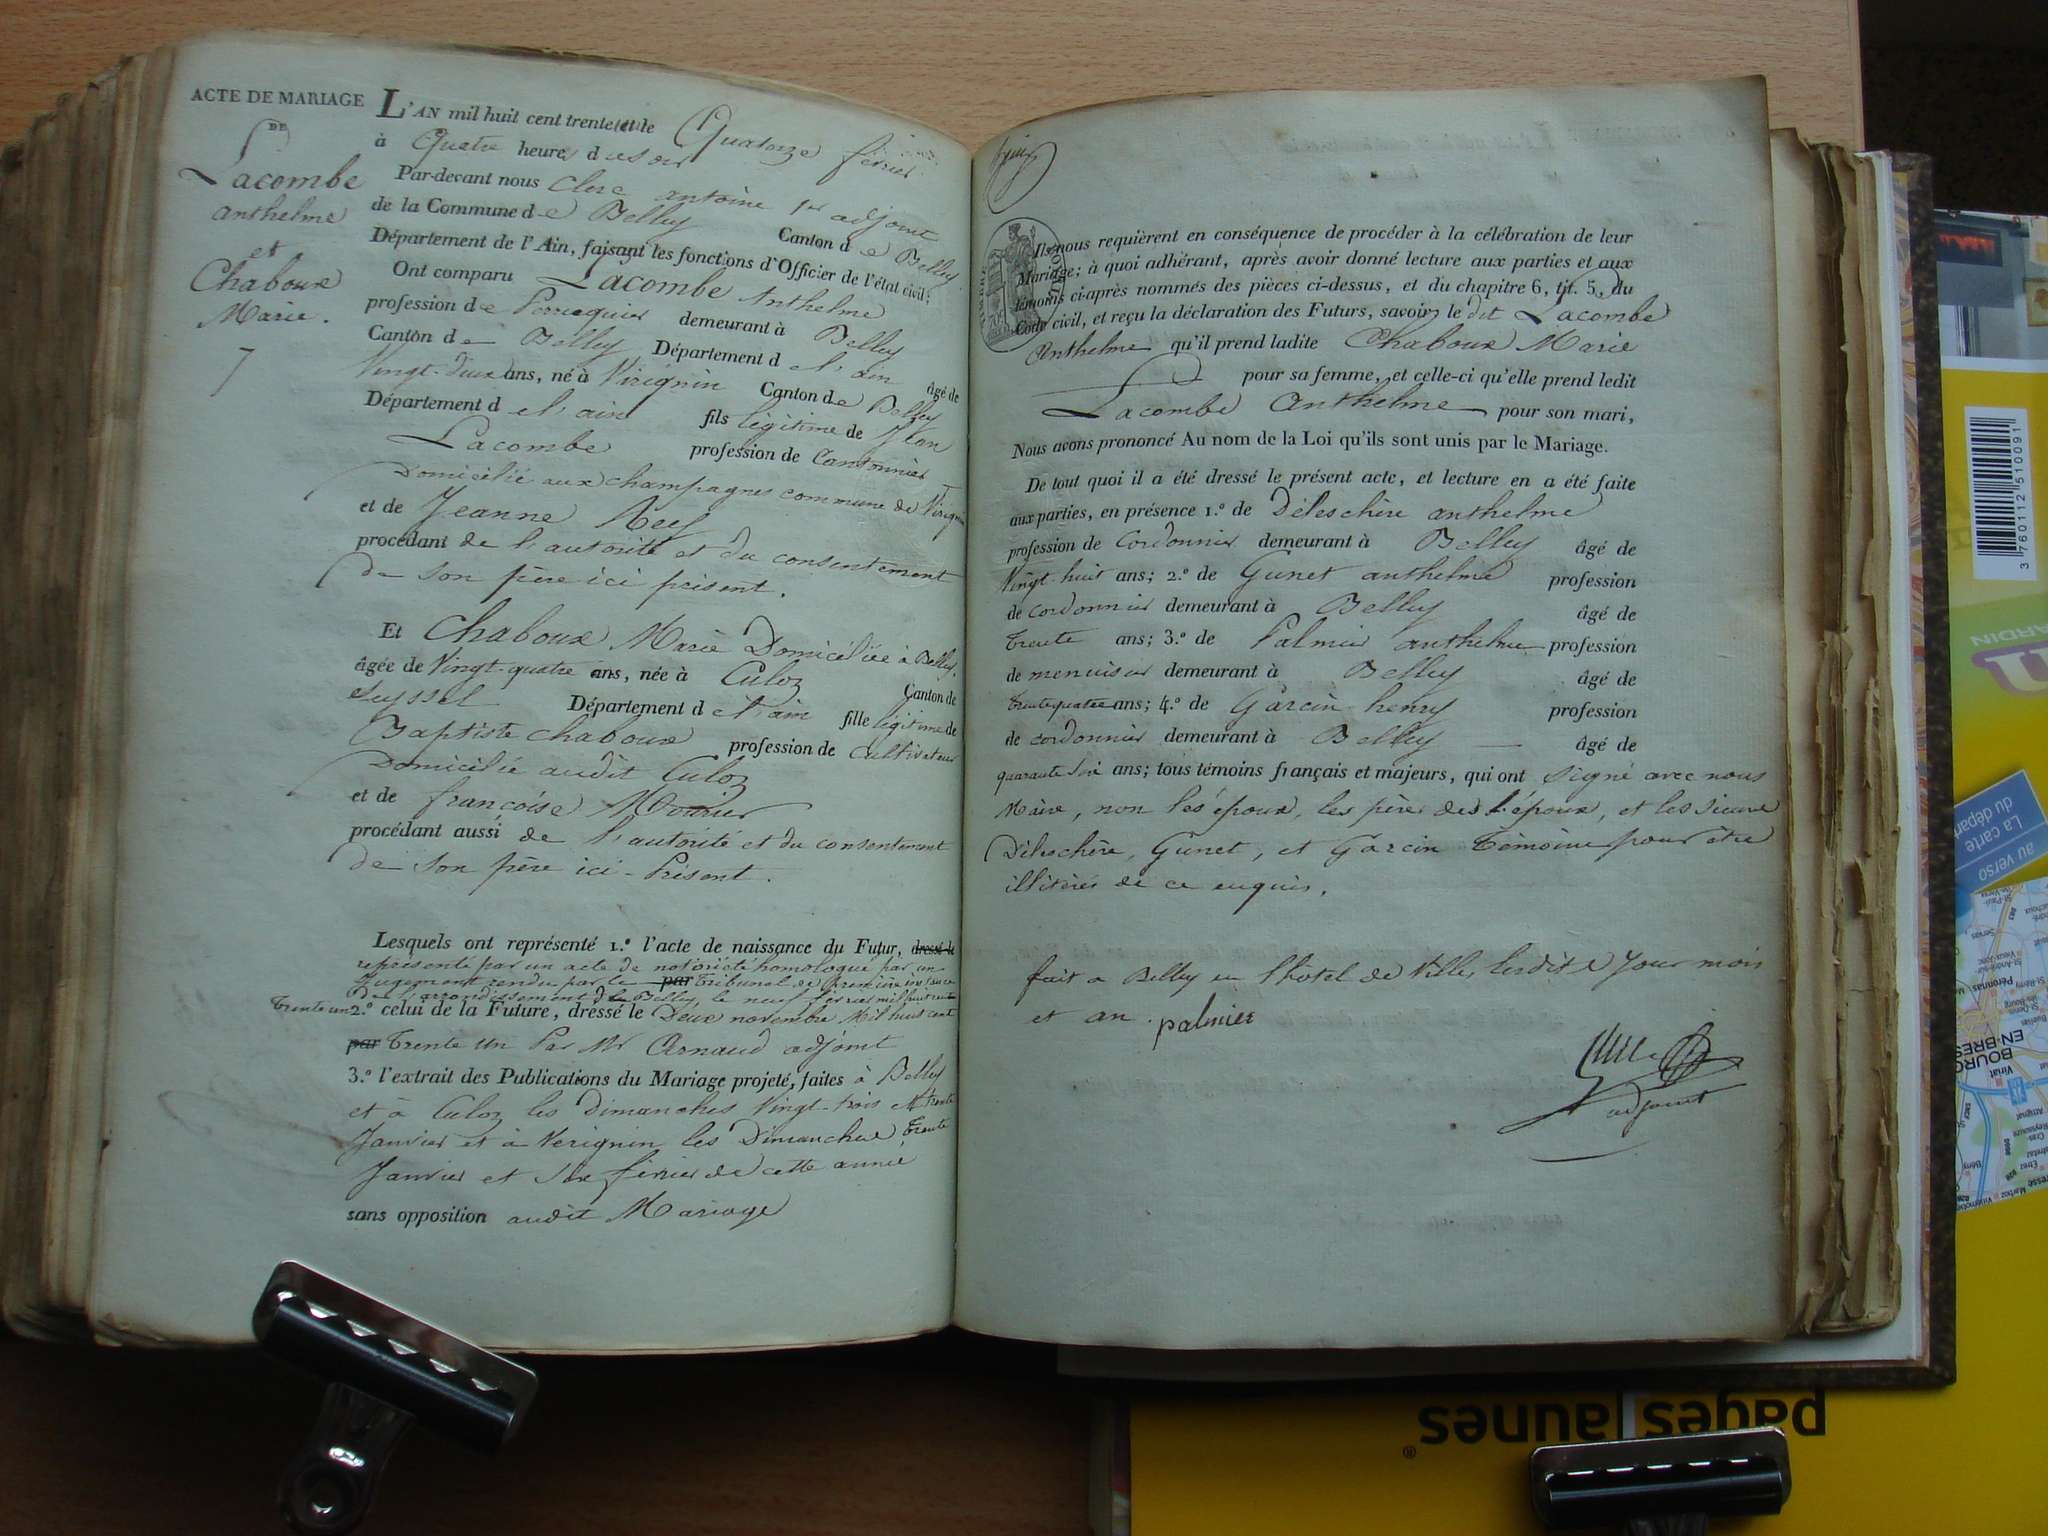 ACTE DE MARIAGE
DE
Lacombe
anthelme
et
Chaboux
Marie.
7
L'AN mil huit cent trente et le Quatorze février
à Quatre heures du soir
Par-devant nous Clerc antoine 1er adjoint
de la Commune de Belley Canton de Belley
Département de l'Ain, faisant les fonctions d'Officier de l'état civil;
Ont comparu Lacombe Anthelme
profession de Perruquier demeurant à Belley
Canton de Belley Département de l'ain âgé de
Vingt-deux ans, né à Virignin Canton de Belley
Département de l'ain fils légitime de Jean
Lacombe profession de Cantonnier
Domicilié aux champagnes commune de Virignin
et de Jeanne Rey
procédant de l'autorité et du consentement
de son père ici présent.
Et Chaboux Marie Domiciliée à Belley
âgée de Vingt-quatre ans, née à Culoz Canton de
Seyssel Département de l'ain fille légitime de
Baptiste Chaboux profession de Cultivateur
Domicilié audit Culoz
et de françoise Mourier
procédant aussi de l'autorité et du consentement
de son père ici-Présent.
Lesquels ont représenté 1.º l'acte de naissance du Futur, dressé le
représenté par un acte de notoriété homologué par un
Jugement rendu par le par Tribunal de Première instance
de l'arrondissement de Belley, le neuf février mil huit cent
Trente un 2.º celui de la Future, dressé le Deux novembre Mil huit cent
par Trente un Par Mr Arnaud adjoint
3.º l'extrait des Publications du Mariage projeté, faites à Belley
et à Culoz les Dimanches Vingt-trois et trente
Janvier et à Verignin les Dimanches Trente
Janvier et six février de cette année
sans opposition audit Mariage
Ils nous requièrent en conséquence de procéder à la célébration de leur
Mariage; à quoi adhérant, après avoir donné lecture aux parties et aux
témoins ci-après nommés des pièces ci-dessus, et du chapitre 6, tit. 5, du
Code civil, et reçu la déclaration des Futurs, savoir, le dit Lacombe
Anthelme qu'il prend ladite Chaboux Marie
pour sa femme, et celle-ci qu'elle prend ledit
Lacombe Anthelme pour son mari,
Nous avons prononcé Au nom de la Loi qu'ils sont unis par le Mariage.
De tout quoi il a été dressé le présent acte, et lecture en a été faite
aux parties, en présence 1.º de Déleschère anthelme
profession de Cordonnier demeurant à Belley âgé de
Vingt-huit ans; 2.º de Gunet anthelme profession
de cordonnier demeurant à Belley âgé de
Trente ans; 3.º de Palmier anthelme profession
de menuisier demeurant à Belley âgé de
Trente quatre ans; 4.º de Garcin henry profession
de cordonnier demeurant à Belley âgé de
quarante six ans; tous témoins français et majeurs, qui ont signé avec nous
Maire, non les époux, les père des l'époux, et les sieurs
Déleschère, Gunet, et Garcin Témoins pour être
illitérés de ce enquis.
fait a Belley en l'hotel de Ville, lesdits Jour mois
et an. palmier
adjoint
3 760112 510091
La carte
du départ
au verso
pages jaunes
Péronnas
Viriat